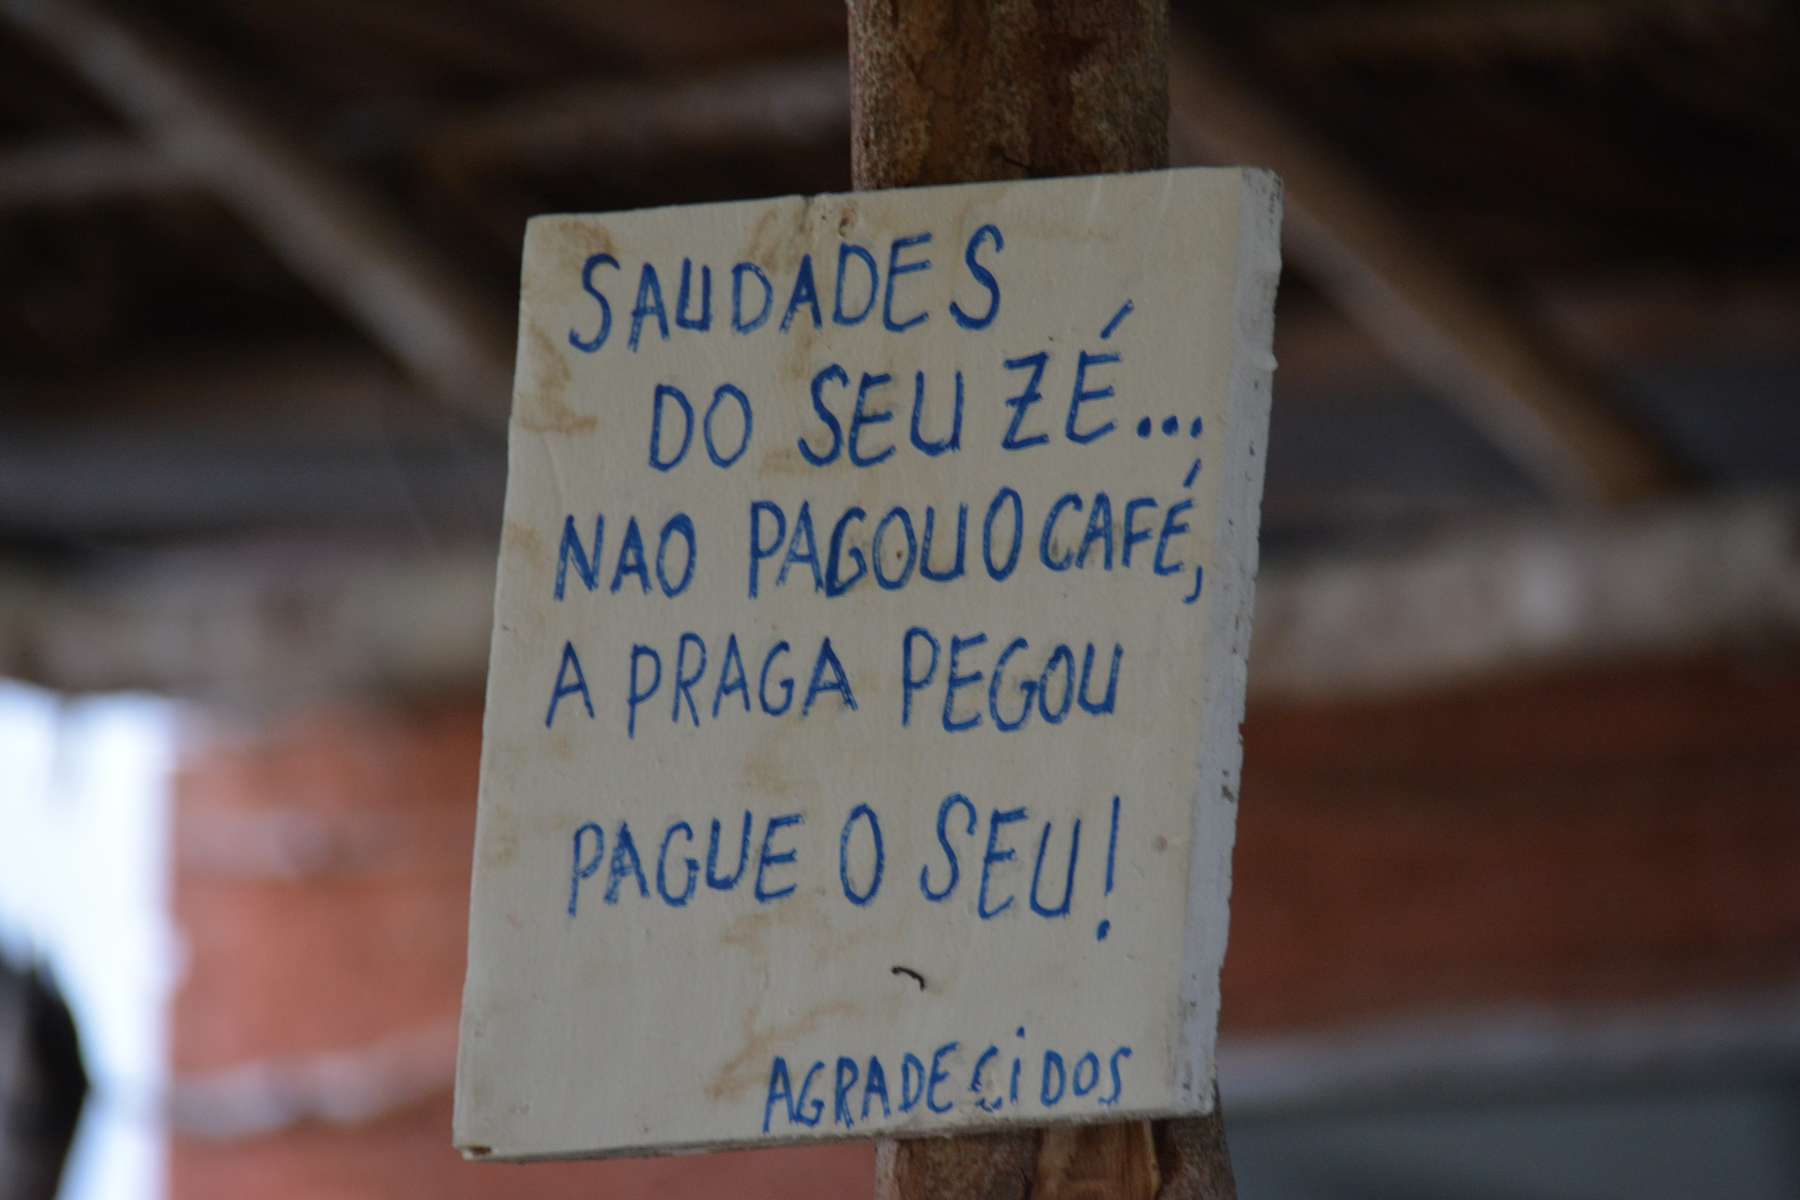 SAUDADES
DO SEU ZÉ...
NAO PAGOU O CAFÉ,
A PRAGA PEGOU
PAGUE O SEU!
AGRADECIDOS